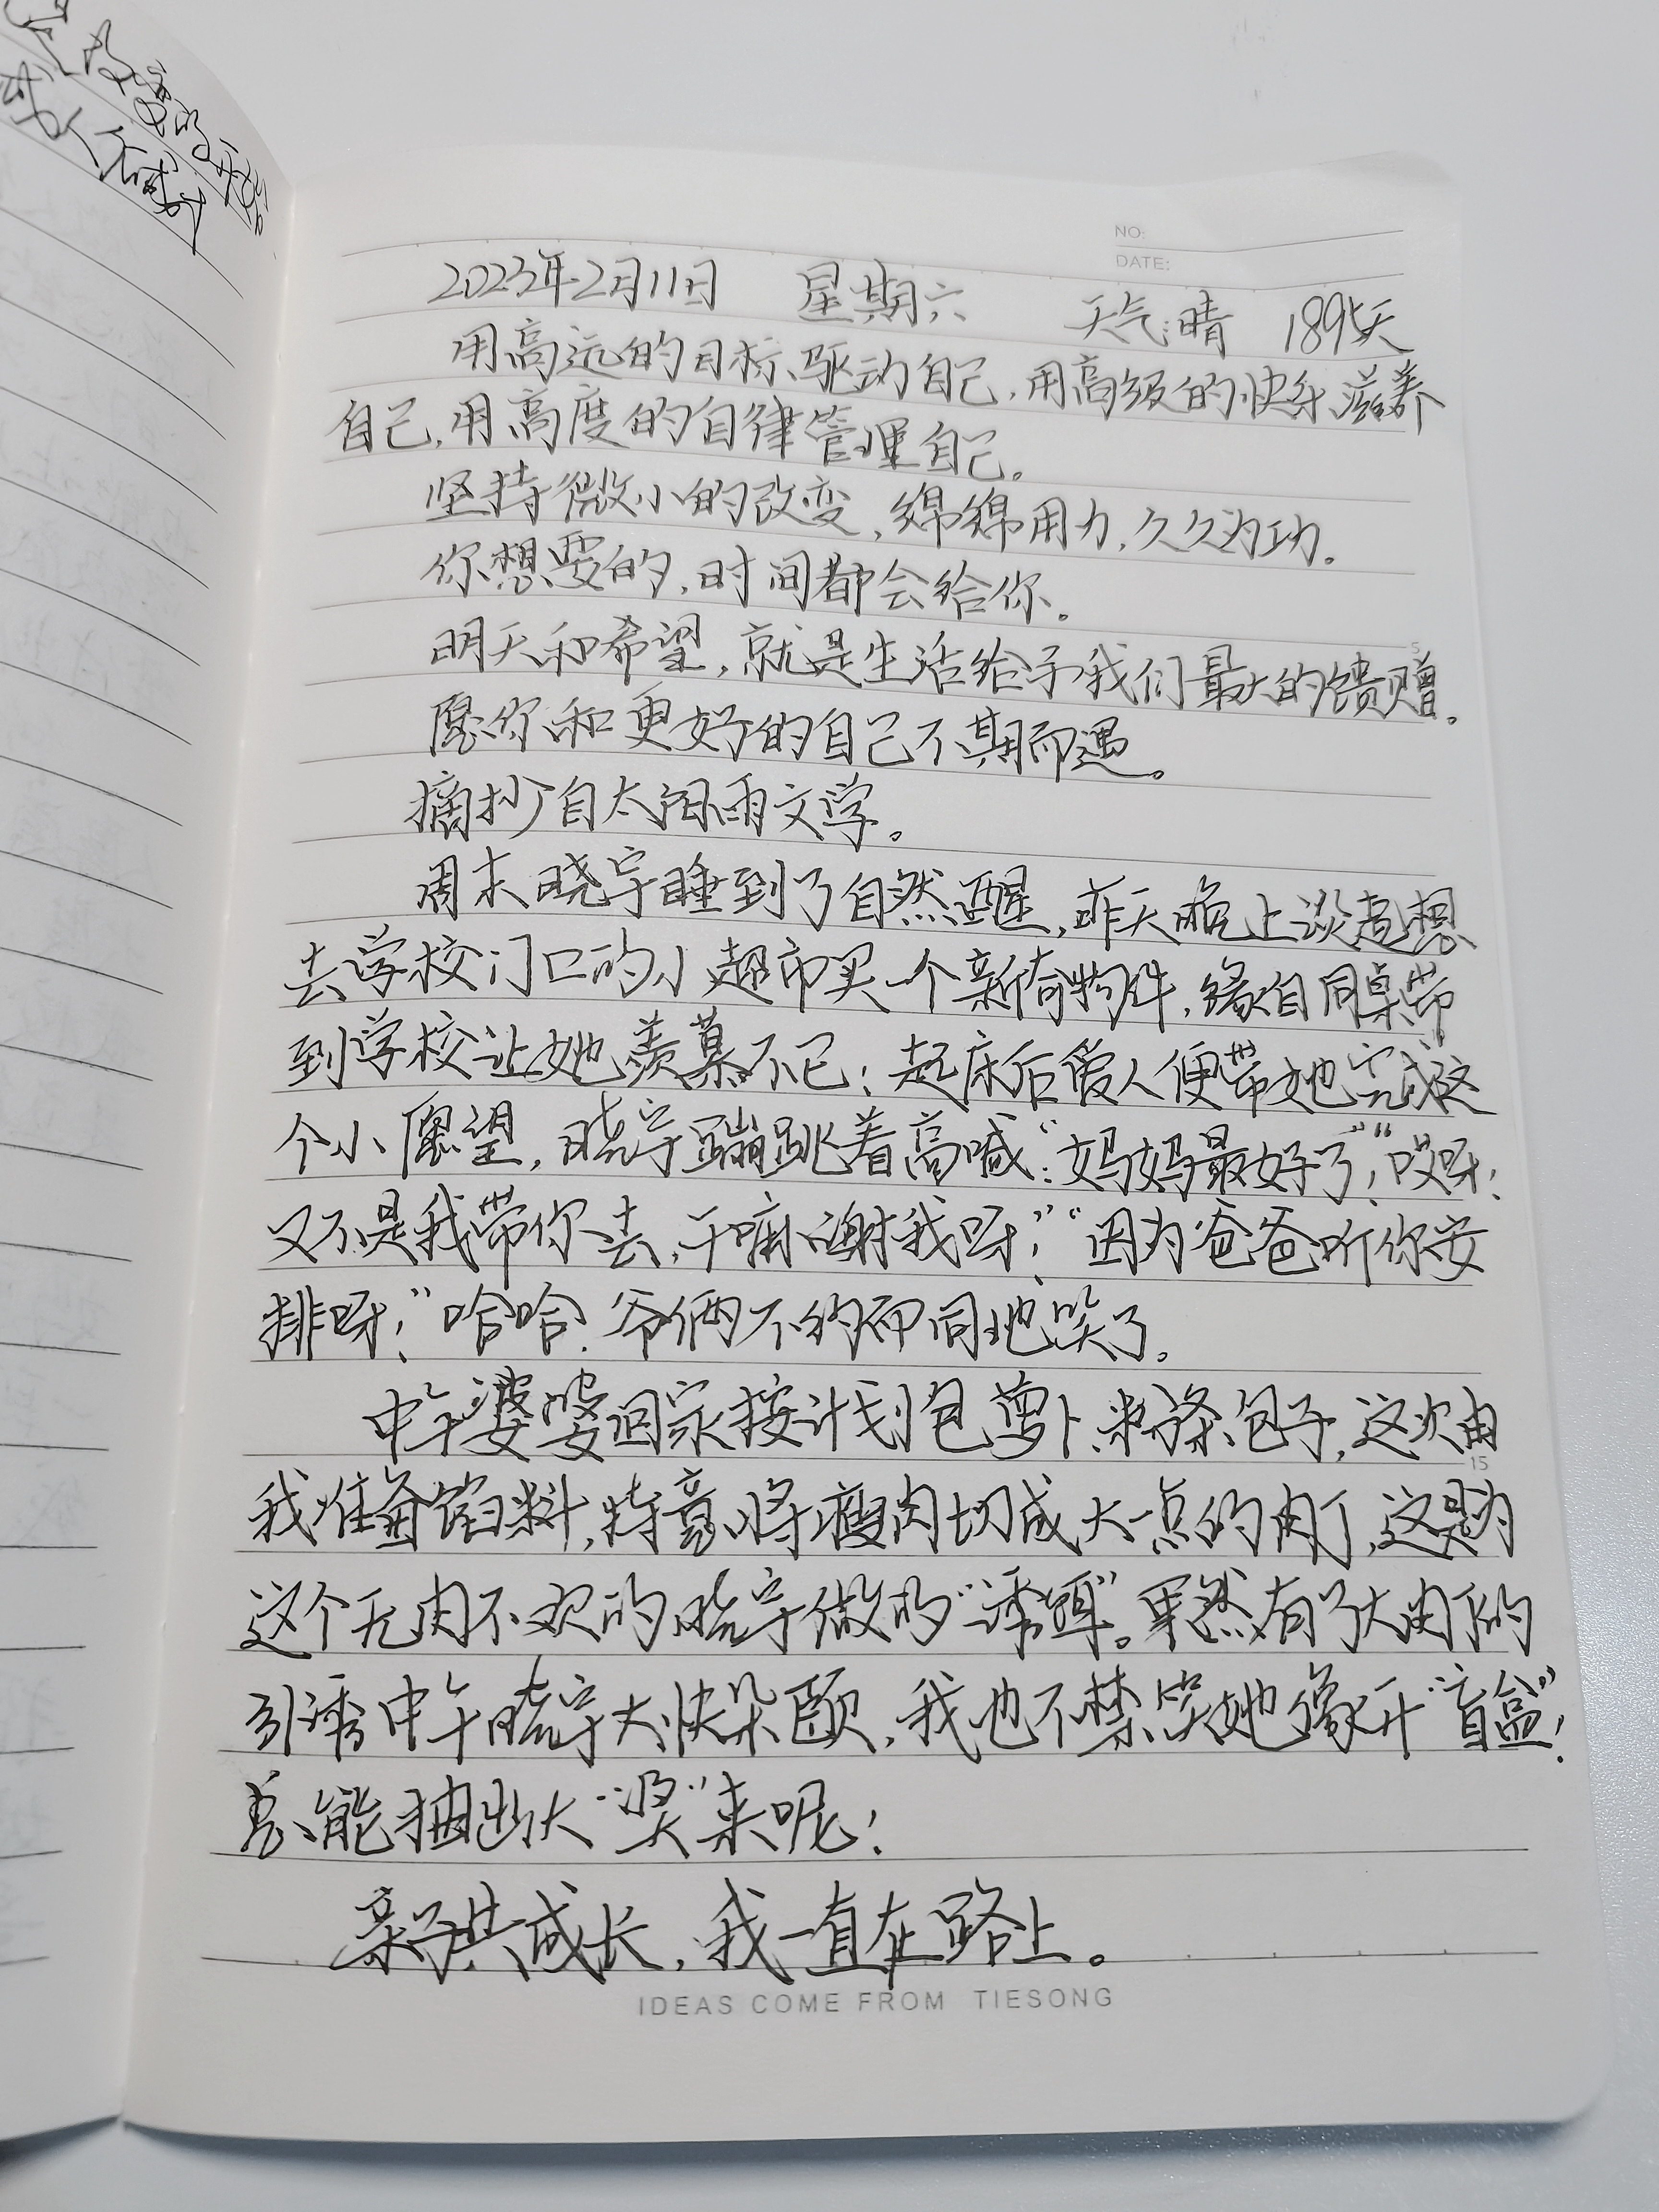 NO:
DATE:
2023年2月11日 星期六 天气:晴 1895天
用高远的目标驱动自己,用高级的快乐滋养
自己,用高度的自律管理自己。
坚持微小的改变,绵绵用力,久久为功。
你想要的,时间都会给你。
5
明天和希望,就是生活给予我们最大的馈赠。
愿你和更好的自己不期而遇。
摘抄自太阳雨文学。
周末晓宇睡到了自然醒,昨天晚上谈起想
去学校门口的小超市买一个新奇物件,缘自同桌带
到学校让她羡慕不已;起床后爱人便带她完成这
个小愿望,晓宇蹦跳着高喊:“妈妈最好了!”“哎呀!
又不是我带你去,干嘛谢我呀!”“因为爸爸听你安
排呀!”哈哈!爷俩不约而同地笑了。
中午婆婆回家按计划包萝卜粉条包子,这次由
15
我准备馅料,特意将瘦肉切成大一点的肉丁,这是为
这个无肉不欢的晓宇做的“诱饵”。果然有了大肉丁的
引诱中午晓宇大快朵颐,我也不禁笑她像开“盲盒”!
总能抽出大“奖”来呢!
亲子共成长,我一直在路上。
IDEAS COME FROM TIESONG